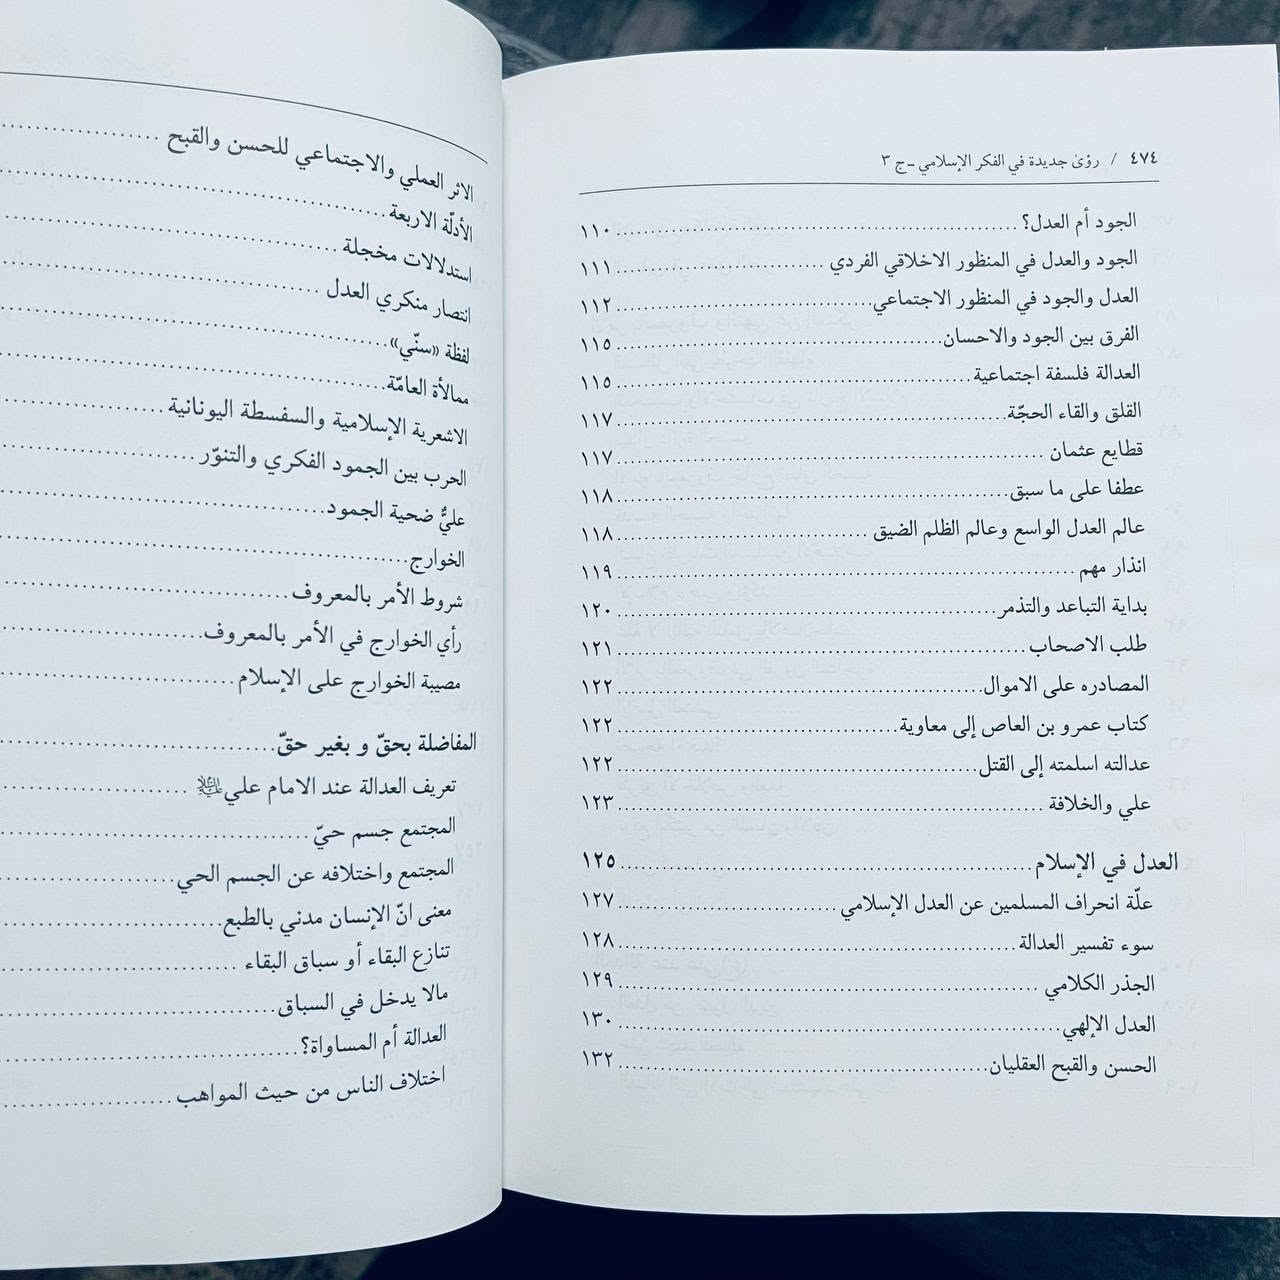 ٤٧٤ / رؤىٰ جديدة في الفكر الإسلامي ـ ج ٣
الجود أم العدل؟ ........ ١١٠
الجود والعدل في المنظور الاخلاقي الفردي ........ ١١١
العدل والجود في المنظور الاجتماعي ........ ١١٢
الفرق بين الجود والاحسان ........ ١١٥
العدالة فلسفة اجتماعية ........ ١١٥
القلق والقاء الحجّة ........ ١١٧
قطايع عثمان ........ ١١٧
عطفا على ما سبق ........ ١١٨
عالم العدل الواسع وعالم الظلم الضيق ........ ١١٨
انذار مهم ........ ١١٩
بداية التباعد والتذمر ........ ١٢٠
طلب الاصحاب ........ ١٢١
المصادره على الاموال ........ ١٢٢
كتاب عمرو بن العاص إلى معاوية ........ ١٢٢
عدالته اسلمته إلى القتل ........ ١٢٢
علي والخلافة ........ ١٢٣
العدل في الإسلام ........ ١٢٥
علّة انحراف المسلمين عن العدل الإسلامي ........ ١٢٧
سوء تفسير العدالة ........ ١٢٨
الجذر الكلامي ........ ١٢٩
العدل الإلهي ........ ١٣٠
الحسن والقبح العقليان ........ ١٣٢
الاثر العملي والاجتماعي للحسن والقبح ........
الأدلّة الاربعة ........
استدلالات مخجلة ........
انتصار منكري العدل ........
لفظة «سنّي» ........
ممالأة العامّة ........
الاشعرية الإسلامية والسفسطة اليونانية ........
الحرب بين الجمود الفكري والتنوّر ........
عليٌّ ضحية الجمود ........
الخوارج ........
شروط الأمر بالمعروف ........
رأي الخوارج في الأمر بالمعروف ........
مصيبة الخوارج على الإسلام ........
المفاضلة بحقّ و بغير حقّ ........
تعريف العدالة عند الامام علي عليه السلام ........
المجتمع جسم حيّ ........
المجتمع واختلافه عن الجسم الحي ........
معنى انّ الإنسان مدني بالطبع ........
تنازع البقاء أو سباق البقاء ........
مالا يدخل في السباق ........
العدالة أم المساواة؟ ........
اختلاف الناس من حيث المواهب ........